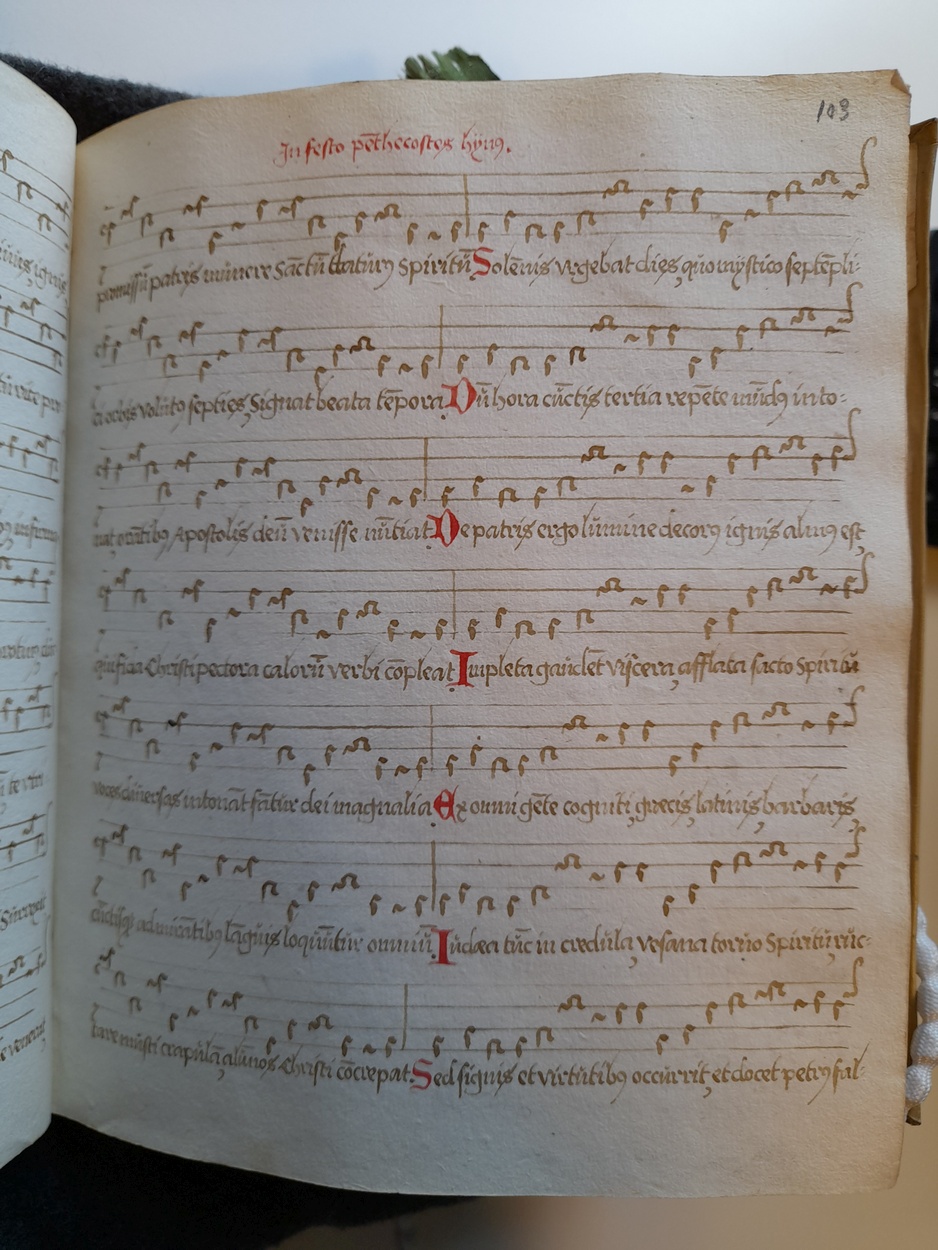 103
In festo pēthecostes hyms.
promissū patris munere Sāctū daturꝰ Spiritū Solēnis vrgebat dies, quo mystico septēpli-
ci orbis voluto septies, Signat beata tēpora Dū hora cūctis tertia repēte mūdꝰ into-
nat, orātibꝰ Apostolis deū venisse nūtiat. De patris ergo lumine decorꝰ ignis almꝰ est,
qui fida Christi pectora calorū verbi cōpleat Impleta gaudēt viscera, afflata sācto Spiritū
voces diuersas intonāt fātur dei magnalia Ex omni gēte cogniti, grecis, latinis, barbaris,
cūctisqꝫ admirātibꝰ lāguis loquūtur omniū Iudæa tūc in credula, vesana toruo Spiritū ruc-
tare musti crapulā, alūnos Christi cōcrepat. Sed signis et virtutibꝰ occurrit, et docet petrꝰ fal-